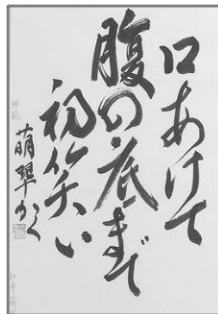 口あけて
腹の底まで
初笑い
萌翠かく